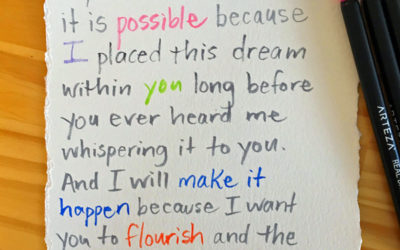 it is possible because
I placed this dream
within you long before
you ever heard me
whispering it to you.
And I will make it
happen because I want
you to flourish and the
ARTEZA